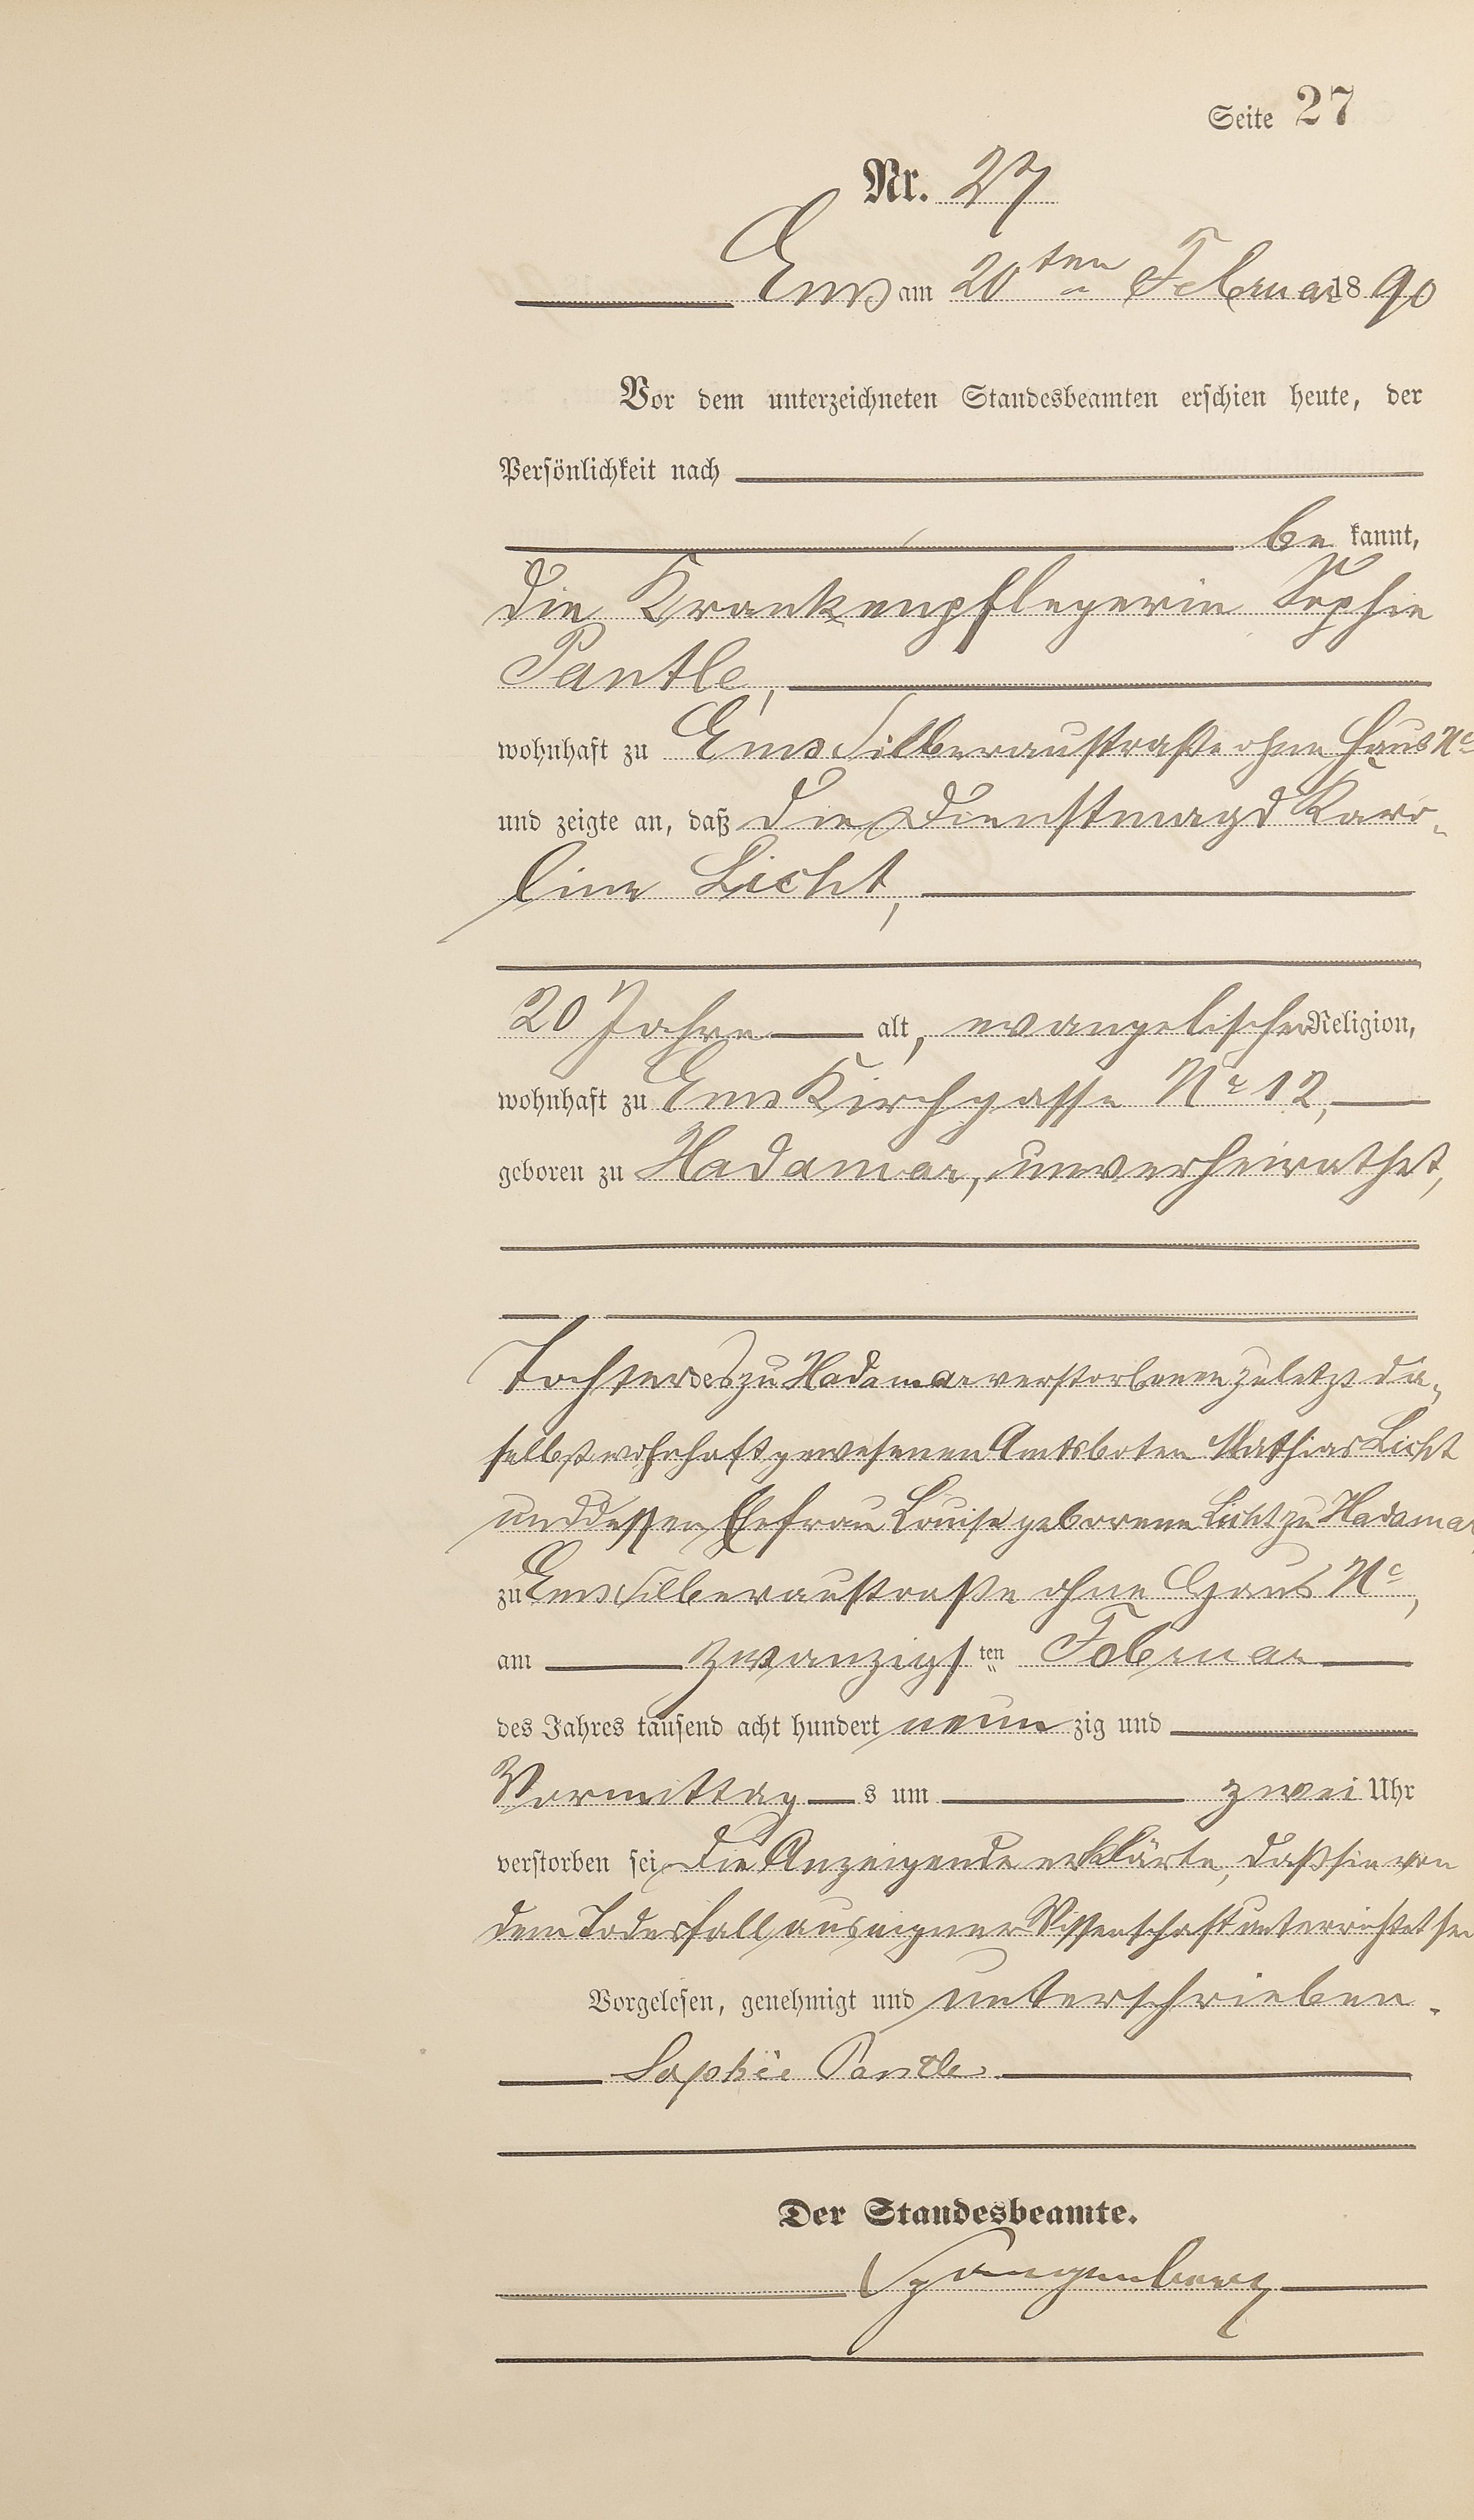 Seite 27
Nr. 27
Ems am 20ten Februar 1890
Vor dem unterzeichneten Standesbeamten erschien heute, der
Persönlichkeit nach
be kannt,
die Krankenpflegerin Sophie
Pantle,
wohnhaft zu Ems Silberaustraße ohne Haus No
und zeigte an, daß die Dienstmagd Karo-
line Licht,
20 Jahre alt, evangelischer Religion,
wohnhaft zu Ems Kirchgasse No 12,
geboren zu Hadamar, unverheirathet,
Tochter des zu Hadamar verstorbenen zuletzt da-
selbst wohnhaft gewesenen Amtsboten Mathias Licht
und dessen Ehefrau Louise geborene Licht zu Hadamar
zu Ems Silberaustraße ohne Haus No,
am zwanzigsten Februar
des Jahres tausend acht hundert neunzig und
Vormittags um zwei Uhr
verstorben sei. Die Anzeigende erklärte, daß sie von
dem Todesfall aus eigner Wissenschaft unterrichtet sei
Vorgelesen, genehmigt und unterschrieben.
Sophie Pantle.
Der Standesbeamte.
Spangenberg